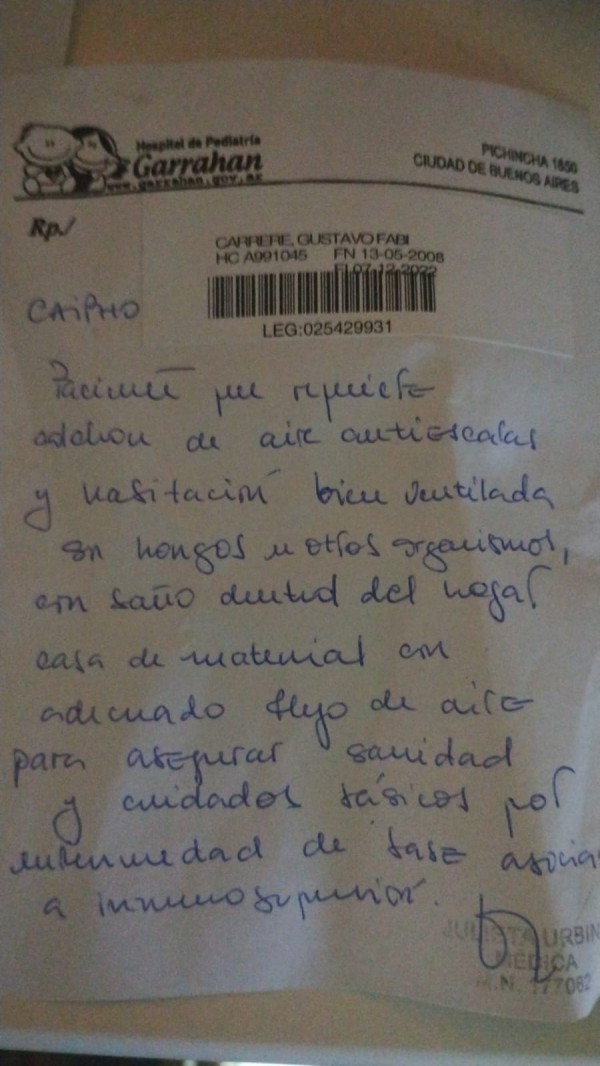 Hospital de Pediatría
Garrahan
www.garrahan.gov.ar
PICHINCHA 1850
CIUDAD DE BUENOS AIRES
Rp./
CARRERE, GUSTAVO FABI
HC A991045 FN 13-05-2008
FI 07-12-2022
LEG:025429931
Paciente que requiere
colchon de aire antiescaras
y habitación bien ventilada
sin hongos u otros organismos,
con baño dentro del hogar
casa de material con
adecuado flujo de aire
para asegurar sanidad
y cuidados básicos por
enfermedad de base asocia
a inmunosupresión.
JULIETA URBIN
MEDICA
M.N. 177062